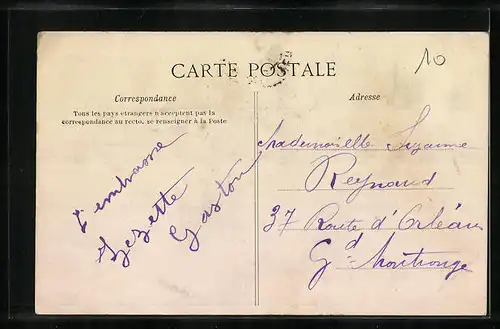 10
CARTE POSTALE
Correspondance
Tous les pays étrangers n'acceptent pas la
correspondance au recto, se renseigner à la Poste
Adresse
T'embrasse
Zezette
Gaston
Mademoiselle Suzanne
Reynaud
37 Route d'Orléans
Gd Montrouge